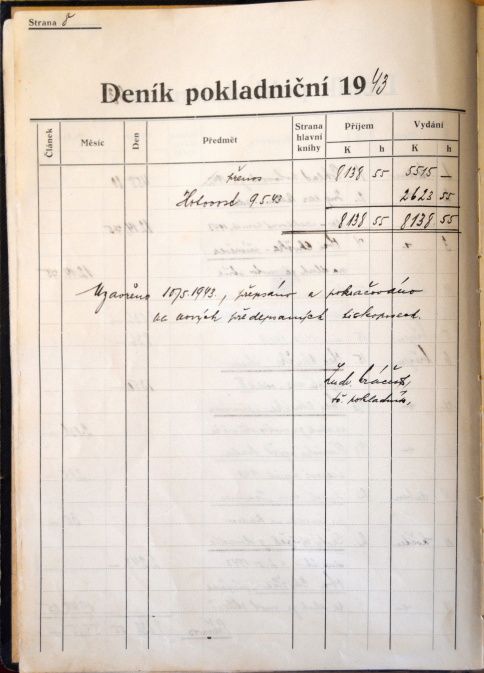 Strana 8
Deník pokladniční 1943
Článek Měsíc Den Předmět Strana hlavní knihy Příjem Vydání
K h K h
Přenos 8138 55 5515 —
Hotovost 9.5.43 2623 55
8138 55 8138 55
Uzavřeno 10/5.1943, přepsáno a pokračováno
na nových předepsaných tiskopisech.
Ludv.
tč. pokladník,